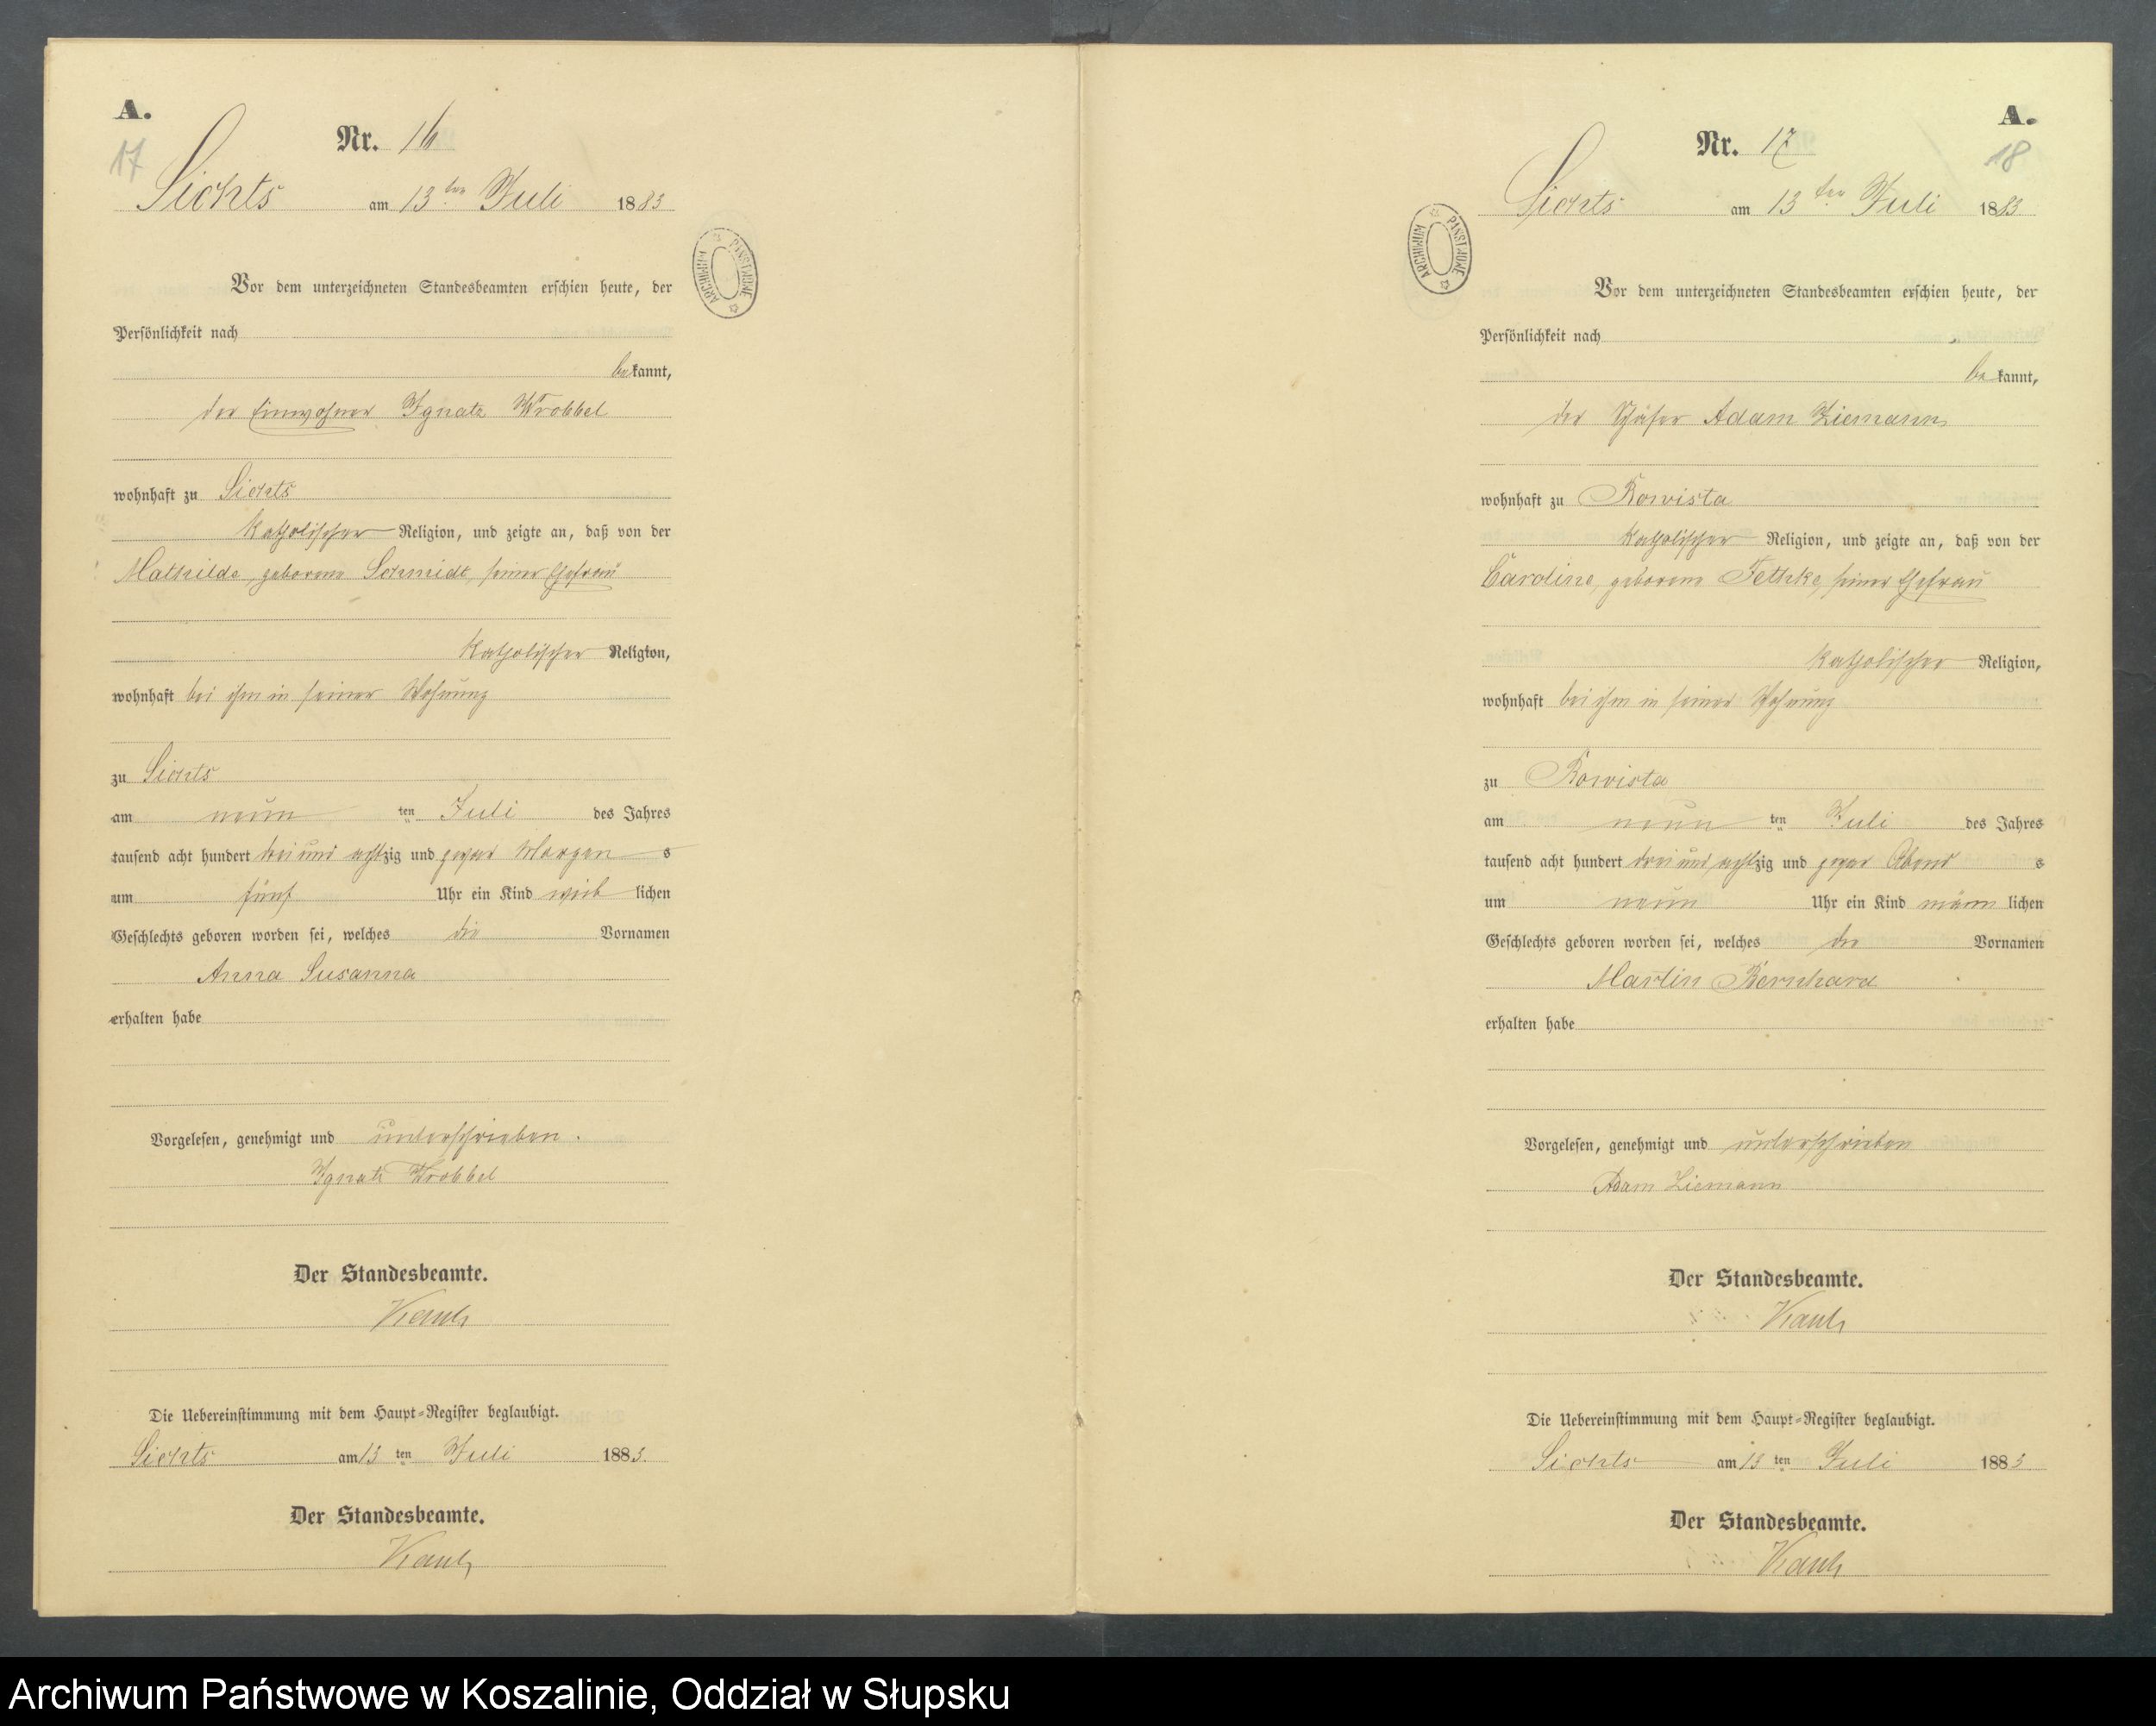 A.
17
Nr. 16
Sichts am 13ten Juli 1883
ARCHIWUM PAŃSTWOWE
Vor dem unterzeichneten Standesbeamten erschien heute, der
Persönlichkeit nach
bekannt,
der Einwohner Ignatz Wrobbel
wohnhaft zu Sichts
katholischer Religion, und zeigte an, daß von der
Mathilde, geborene Schmidt, seiner Ehefrau
katholischer Religion,
wohnhaft bei ihm in seiner Wohnung
zu Sichts
am neun ten Juli des Jahres
tausend acht hundert drei und achtzig und zwar Morgens
um fünf Uhr ein Kind weiblichen
Geschlechts geboren worden sei, welches die Vornamen
Anna Susanna
erhalten habe
Vorgelesen, genehmigt und unterschrieben.
Ignatz Wrobbel
Der Standesbeamte.
Die Uebereinstimmung mit dem Haupt-Register beglaubigt.
Sichts am 13 ten Juli 1883.
Der Standesbeamte.
A.
18
Nr. 17
Sichts am 13ten Juli 1883
ARCHIWUM PAŃSTWOWE
Vor dem unterzeichneten Standesbeamten erschien heute, der
Persönlichkeit nach
bekannt,
der Schäfer Adam Ziemann
wohnhaft zu Rowista
katholischer Religion, und zeigte an, daß von der
Caroline, geborene Fethke, seiner Ehefrau
katholischer Religion,
wohnhaft bei ihm in seiner Wohnung
zu Rowista
am neun ten Juli des Jahres
tausend acht hundert drei und achtzig und zwar Abends
um neun Uhr ein Kind männlichen
Geschlechts geboren worden sei, welches die Vornamen
Martin Bernhard
erhalten habe
Vorgelesen, genehmigt und unterschrieben
Adam Ziemann
Der Standesbeamte.
Die Uebereinstimmung mit dem Haupt-Register beglaubigt.
Sichts am 13 ten Juli 1883
Der Standesbeamte.
Archiwum Państwowe w Koszalinie, Oddział w Słupsku